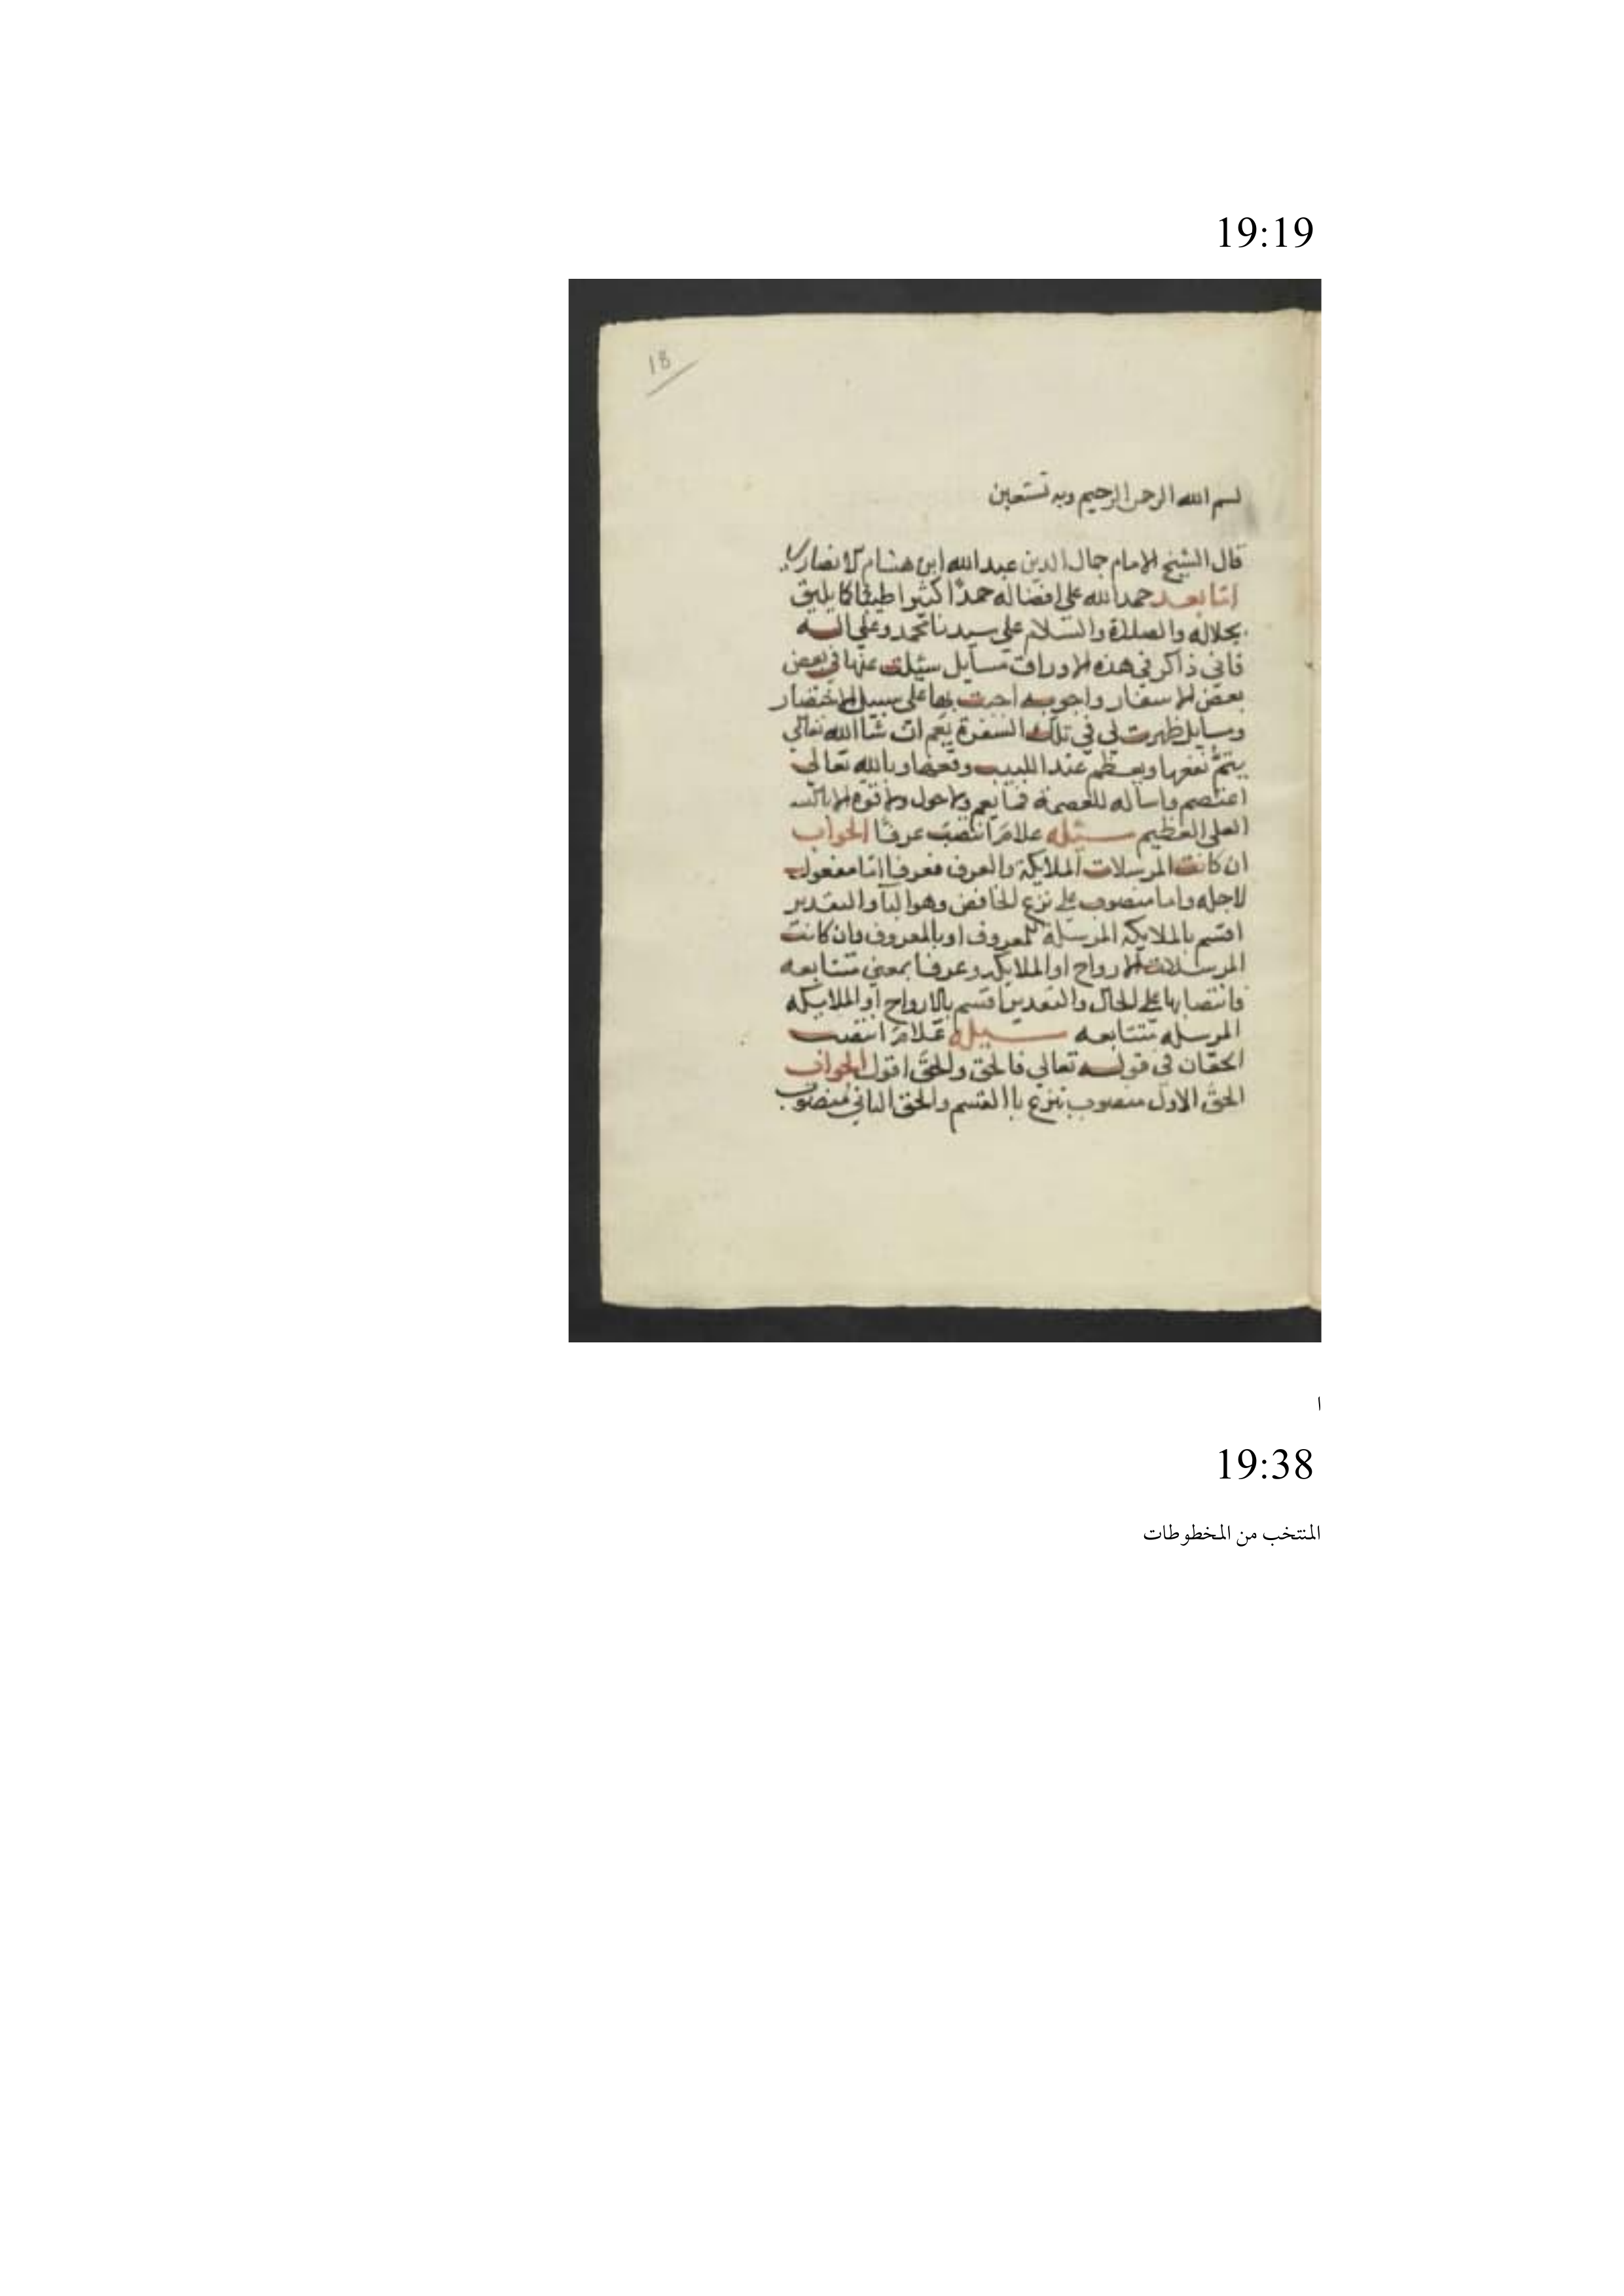 19:19
18
بسم الله الرحمن الرحيم وبه نستعين
قال الشيخ الامام جمال الدين عبد الله ابن هشام الانصاري
اما بعد حمد الله علي افضاله حمدًا كثيرا طيبا كما يليق
بجلاله والصلاة والسلام علي سيدنا محمد وعلي اله
فاني ذاكر في هذه الاوراق مسايل سئلت عنها في بعض
بعض الاسفار واجوبه اجبت بها على سبيل الاختصار
ومسايل ظهرت لي في تلك السفرة يعم ان شا الله تعالي
يتم نفعها ويعظم عند اللبيب وقعها وبالله تعالى
اعتصم واساله العصمة فيما يعم ولا حول ولا قوة الا بالله
العلي العظيم سئله علامَ انتصب عرفًا الجواب
ان كانت المرسلات الملايكة والعرف فعرفا اما مفعول
لاجله واما منصوب علي نزع الخافض وهو البآ والتقدير
اقسم بالملايكة المرسلة للمعروف او بالمعروف وان كانت
المرسلات الارواح او الملايكه وعرفا بمعني متتابعه
فانتصابها علي الحال والتقدير اقسم بالارواح او الملايكه
المرسله متتابعه سيله علامَ انتصب
الحقان في قوله تعالي فالحق والحقَ اقول الجواب
الحقَ الاول منصوب بنزع باا القسم والحق الثاني منصوب
ا
19:38
المنتخب من المخطوطات